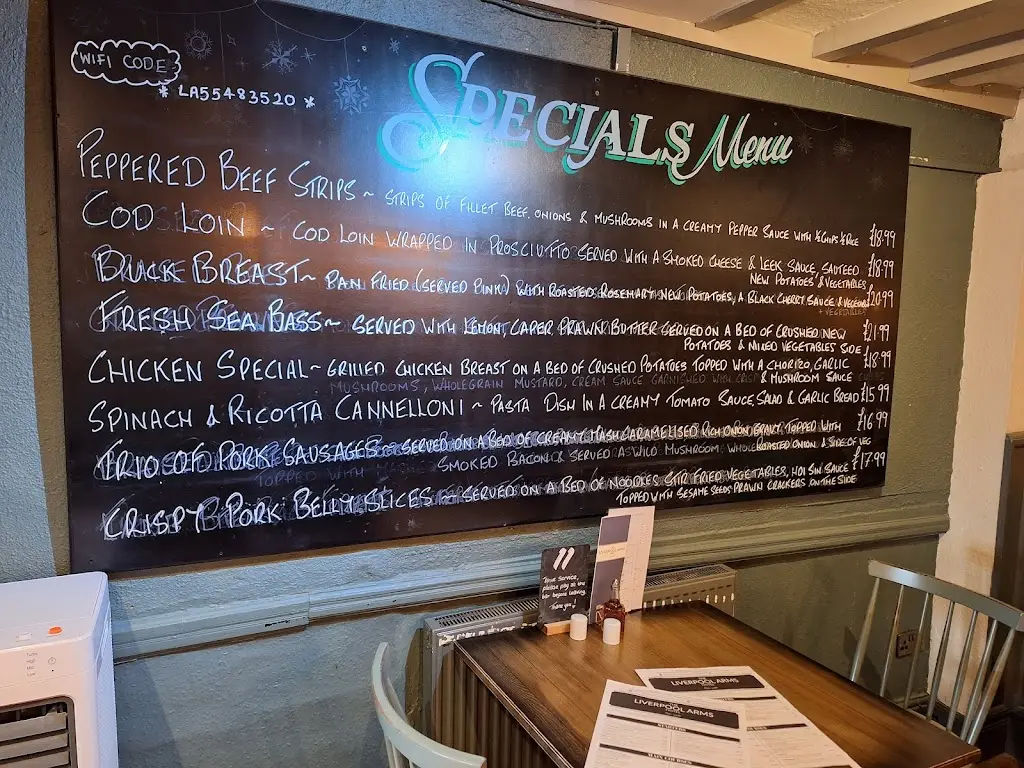 WIFI CODE
* LA55483520 *
SPECIALS Menu
PEPPERED BEEF STRIPS ~ STRIPS OF FILLET BEEF, ONIONS & MUSHROOMS IN A CREAMY PEPPER SAUCE WITH ½ CHIPS ½ RICE £18.99
COD LOIN ~ COD LOIN WRAPPED IN PROSCIUTTO SERVED WITH A SMOKED CHEESE & LEEK SAUCE, SAUTEED £18.99
NEW POTATOES & VEGETABLES
DUCK BREAST ~ PAN FRIED (SERVED PINK) WITH ROASTED ROSEMARY NEW POTATOES, A BLACK CHERRY SAUCE & VEGETABLES £20.99
+ VEGETABLES
FRESH SEA BASS ~ SERVED WITH LEMON, CAPER PRAWN BUTTER SERVED ON A BED OF CRUSHED NEW £21.99
POTATOES & MIXED VEGETABLES SIDE
CHICKEN SPECIAL ~ GRILLED CHICKEN BREAST ON A BED OF CRUSHED POTATOES TOPPED WITH A CHORIZO, GARLIC £18.99
& MUSHROOM SAUCE
MUSHROOMS, WHOLEGRAIN MUSTARD, CREAM SAUCE GARNISHED WITH CRISP
SPINACH & RICOTTA CANNELLONI ~ PASTA DISH IN A CREAMY TOMATO SAUCE, SALAD & GARLIC BREAD £15.99
TRIO OF PORK SAUSAGES ~ SERVED ON A BED OF CREAMY MASH, CARAMELISED RICH ONION GRAVY, TOPPED WITH £16.99
SMOKED BACON & SERVED WILD MUSHROOM ROASTED ONION & SIDE OF VEG
TOPPED WITH
CRISPY PORK BELLY SLICES ~ SERVED ON A BED OF NOODLES, STIR FRIED VEGETABLES, HOI SIN SAUCE £17.99
TOPPED WITH SESAME SEEDS, PRAWN CRACKERS ON THE SIDE
please pay at the
bar before leaving.
Thank you
LIVERPOOL ARMS
LIVERPOOL ARMS
STARTERS
MAIN COURSES